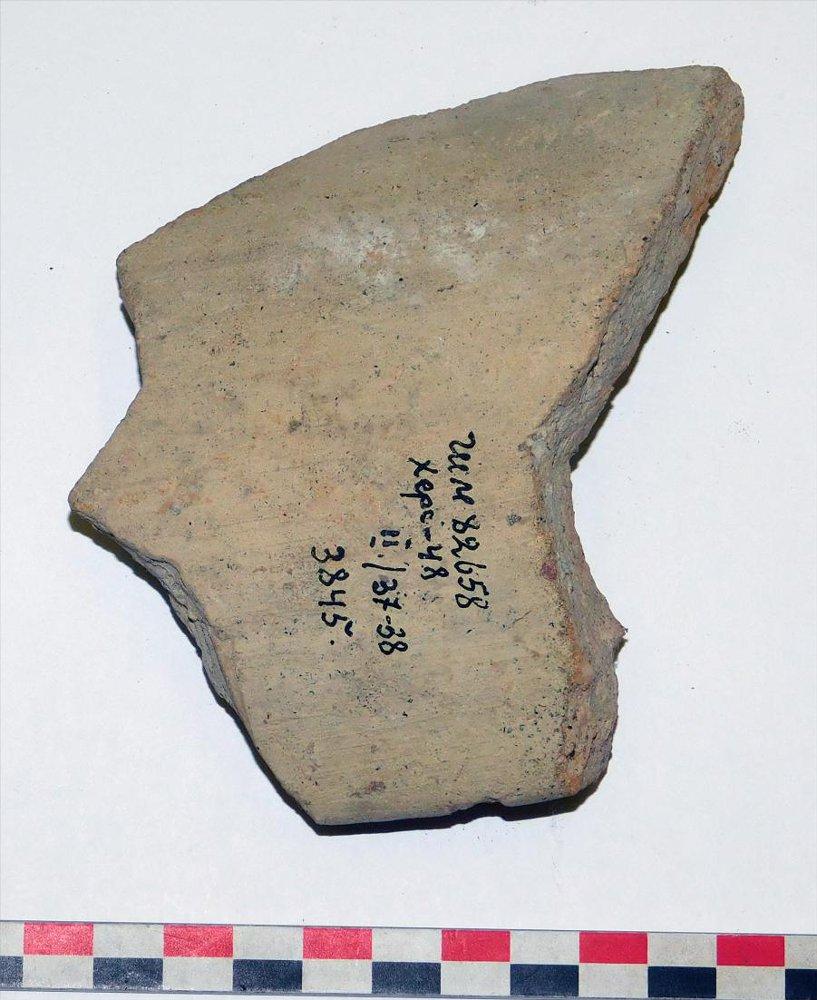 ГИМ 82658
Херс-48
II / 37-38
3845.